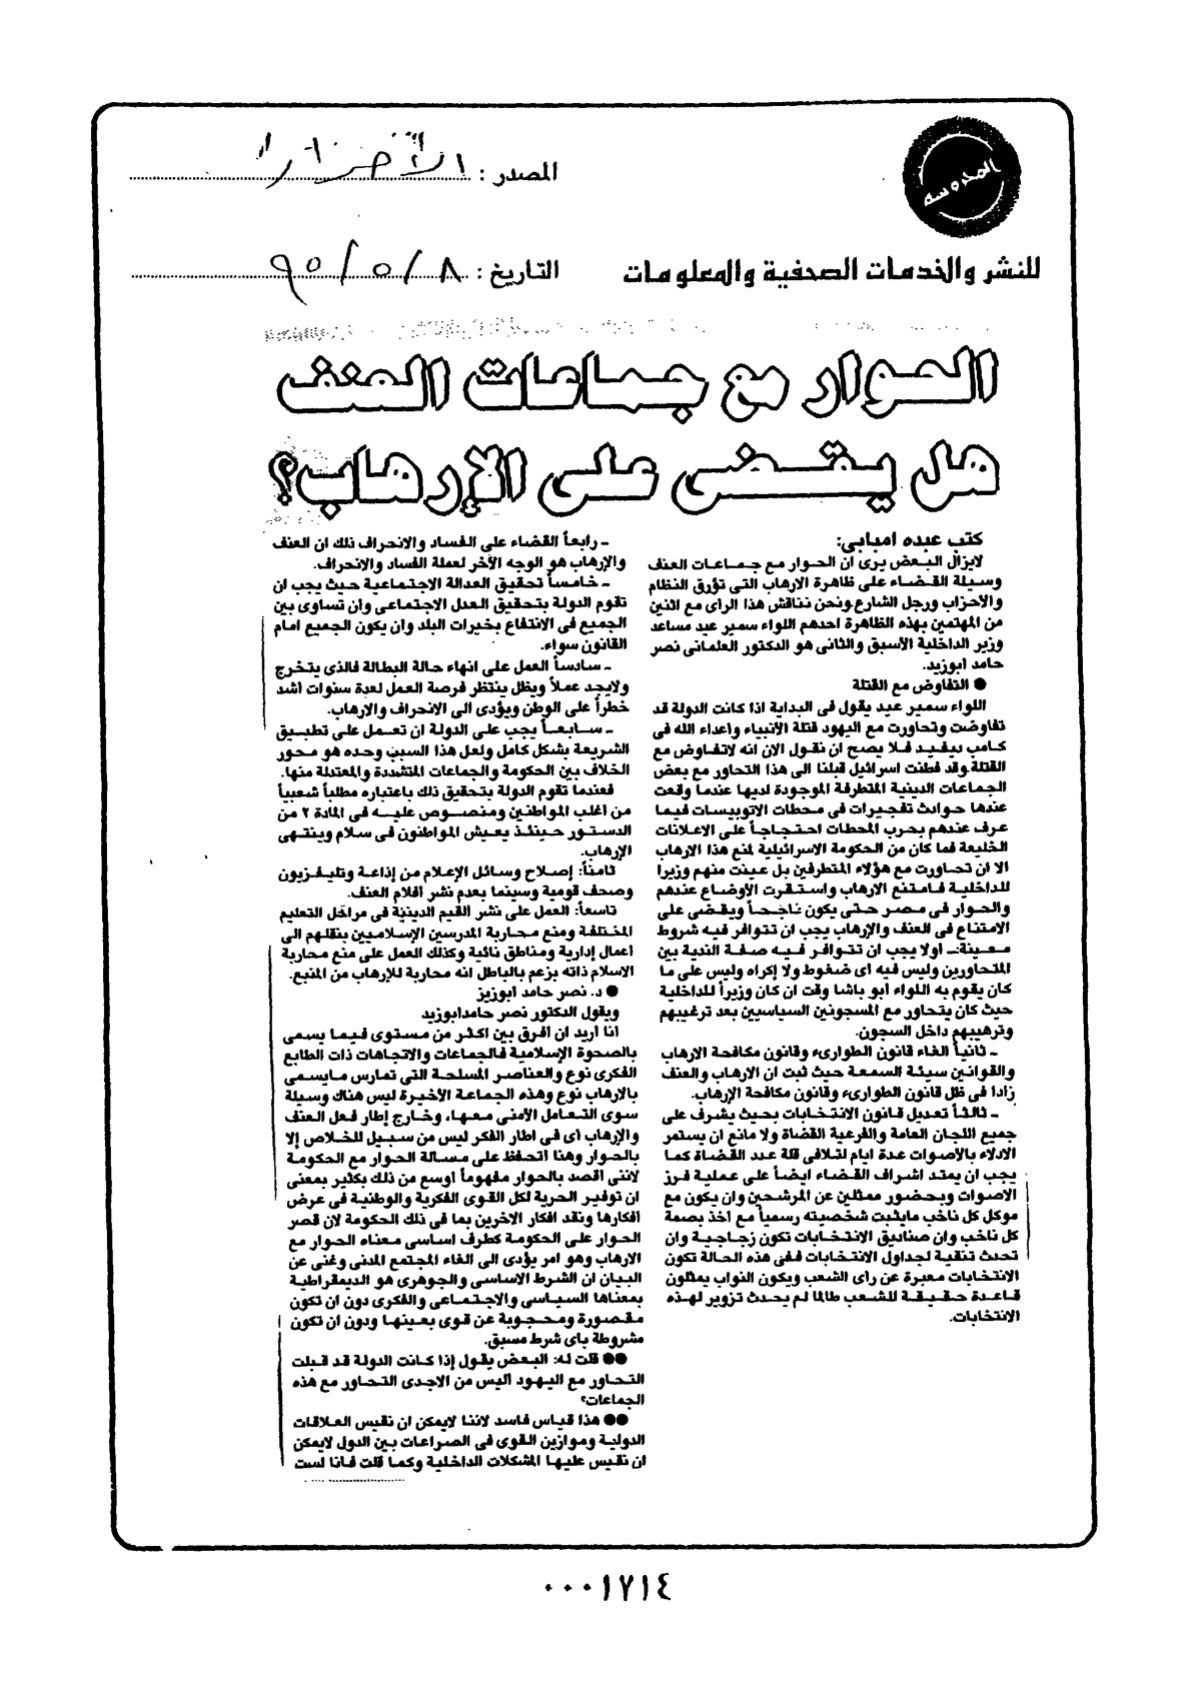 المحروسة
المصدر : الأحرار
للنشر والخدمات الصحفية والمعلومات
التاريخ : ٨ / ٥ / ٩٥
الحوار مع جماعات العنف
هل يقضى على الإرهاب؟
كتب عبده امبابى:
لايزال البعض يرى ان الحوار مع جماعات العنف
وسيلة القضاء على ظاهرة الارهاب التى تؤرق النظام
والاحزاب ورجل الشارع ونحن نناقش هذا الراى مع اثنين
من المهتمين بهذه الظاهرة احدهم اللواء سمير عيد مساعد
وزير الداخلية الأسبق والثانى هو الدكتور العلمانى نصر
حامد ابوزيد.
● التفاوض مع القتلة
اللواء سمير عيد يقول فى البداية اذا كانت الدولة قد
تفاوضت وتحاورت مع اليهود قتلة الأنبياء واعداء الله فى
كامب ديفيد فلا يصح ان نقول الان انه لاتفاوض مع
القتلة وقد فطنت اسرائيل قبلنا الى هذا التحاور مع بعض
الجماعات الدينية المتطرفة الموجودة لديها عندما وقعت
عندها حوادث تفجيرات فى محطات الاتوبيسات فيما
عرف عندهم بحرب المحطات احتجاجاً على الاعلانات
الخليعة فما كان من الحكومة الاسرائيلية لمنع هذا الارهاب
الا ان تحاورت مع هؤلاء المتطرفين بل عينت منهم وزيرا
للداخلية فامتنع الارهاب واستقرت الأوضاع عندهم
والحوار فى مصر حتى يكون ناجحاً ويقضى على
الامتناع فى العنف والإرهاب يجب ان تتوافر فيه شروط
معينة:ـ اولا يجب ان تتوافر فيه صفة الندية بين
المتحاورين وليس فيه اى ضغوط ولا إكراه وليس على ما
كان يقوم به اللواء أبو باشا وقت ان كان وزيراً للداخلية
حيث كان يتحاور مع المسجونين السياسيين بعد ترغيبهم
وترهيبهم داخل السجون.
ـ ثانياً الغاء قانون الطوارىء وقانون مكافحة الارهاب
والقوانين سيئة السمعة حيث ثبت ان الارهاب والعنف
زادا فى ظل قانون الطوارىء وقانون مكافحة الإرهاب.
ـ ثالثاً تعديل قانون الانتخابات بحيث يشرف على
جميع اللجان العامة والفرعية القضاة ولا مانع ان يستمر
الادلاء بالأصوات عدة ايام لتلافى قلة عدد القضاة كما
يجب ان يمتد اشراف القضاء ايضاً على عملية فرز
الاصوات وبحضور ممثلين عن المرشحين وان يكون مع
موكل كل ناخب مايثبت شخصيته رسمياً مع اخذ بصمة
كل ناخب وان صناديق الانتخابات تكون زجاجية وان
تحدث تنقية لجداول الانتخابات ففى هذه الحالة تكون
الانتخابات معبرة عن راى الشعب ويكون النواب يمثلون
قاعدة حقيقة للشعب طالما لم يحدث تزوير لهذه
الانتخابات.
ـ رابعاً القضاء على الفساد والانحراف ذلك ان العنف
والإرهاب هو الوجه الآخر لعملة الفساد والانحراف.
ـ خامساً تحقيق العدالة الاجتماعية حيث يجب ان
تقوم الدولة بتحقيق العدل الاجتماعى وان تساوى بين
الجميع فى الانتفاع بخيرات البلد وان يكون الجميع امام
القانون سواء.
ـ سادساً العمل على انهاء حالة البطالة فالذى يتخرج
ولايجد عملاً ويظل ينتظر فرصة العمل لعدة سنوات اشد
خطراً على الوطن ويؤدى الى الانحراف والإرهاب.
ـ سابعاً يجب على الدولة ان تعمل على تطبيق
الشريعة بشكل كامل ولعل هذا السبب وحده هو محور
الخلاف بين الحكومة والجماعات المتشددة والمعتدلة منها.
فعندما تقوم الدولة بتحقيق ذلك باعتباره مطلباً شعبياً
من اغلب المواطنين ومنصوص عليه فى المادة ٢ من
الدستور حينئذ يعيش المواطنون فى سلام وينتهى
الإرهاب.
ثامناً: إصلاح وسائل الإعلام من إذاعة وتليفزيون
وصحف قومية وسينما بعدم نشر أفلام العنف.
تاسعاً: العمل على نشر القيم الدينية فى مراحل التعليم
المختلفة ومنع محاربة المدرسين الإسلاميين بنقلهم الى
أعمال إدارية ومناطق نائية وكذلك العمل على منع محاربة
الاسلام ذاته بزعم بالباطل انه محاربة للإرهاب من المنبع.
● د. نصر حامد ابوزيز
ويقول الدكتور نصر حامدابوزيد
انا اريد ان افرق بين اكثر من مستوى فيما يسمى
بالصحوة الإسلامية فالجماعات والاتجاهات ذات الطابع
الفكرى نوع والعناصر المسلحة التى تمارس مايسمى
بالارهاب نوع وهذه الجماعة الأخيرة ليس هناك وسيلة
سوى التعامل الأمنى معها، وخارج إطار فعل العنف
والإرهاب أى فى اطار الفكر ليس من سبيل للخلاص إلا
بالحوار وهنا اتحفظ على مسالة الحوار مع الحكومة
لاننى اقصد بالحوار مفهوماً اوسع من ذلك بكثير بمعنى
ان توفير الحرية لكل القوى الفكرية والوطنية فى عرض
أفكارها ونقد افكار الاخرين بما فى ذلك الحكومة لان قصر
الحوار على الحكومة كطرف اساسى معناه الحوار مع
الارهاب وهو امر يؤدى الى الغاء المجتمع المدنى وغنى عن
البيان ان الشرط الاساسى والجوهرى هو الديمقراطية
بمعناها السياسى والاجتماعى والفكرى دون ان تكون
مقصورة ومحجوبة عن قوى بعينها ودون ان تكون
مشروطة باى شرط مسبق.
●● قلت له: البعض يقول إذا كانت الدولة قد قبلت
التحاور مع اليهود اليس من الاجدى التحاور مع هذه
الجماعات؟
●● هذا قياس فاسد لاننا لايمكن ان نقيس العلاقات
الدولية وموازين القوى فى الصراعات بين الدول لايمكن
ان نقيس عليها المشكلات الداخلية وكما قلت فانا لست
٠٠٠١٧١٤